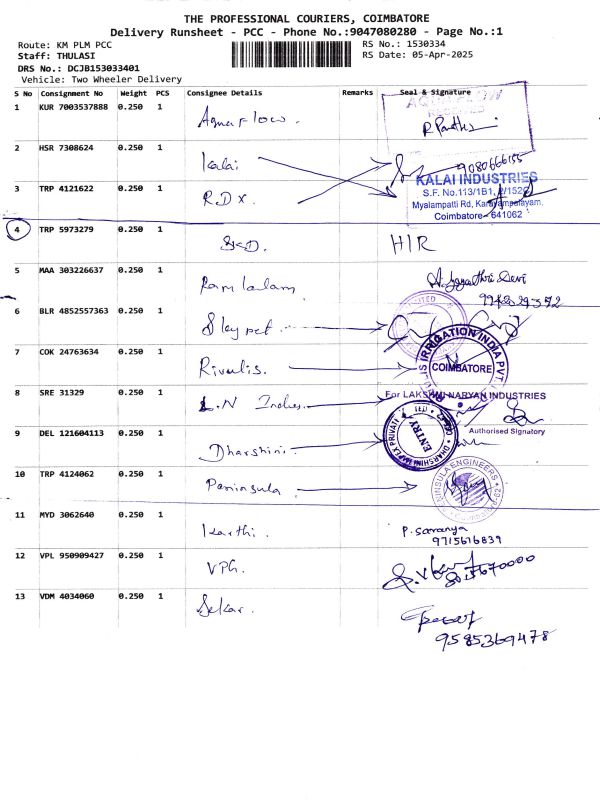 THE PROFESSIONAL COURIERS, COIMBATORE
Delivery Runsheet - PCC - Phone No.:9047080280 - Page No.:1
Route: KM PLM PCC
RS No.: 1530334
Staff: THULASI
RS Date: 05-Apr-2025
DRS No.: DCJB153033401
Vehicle: Two Wheeler Delivery
S No Consignment No Weight PCS Consignee Details Remarks Seal & Signature
1 KUR 7003537888 0.250 1 Aquaflow. AQUA FLOW
2 HSR 7308624 0.250 1 Kalai 9080666155
KALAI INDUSTRIES
3 TRP 4121622 0.250 1 RDX.
S.F. No.113/1B1, 2/152C
Myalampatti Rd, Karayampalayam,
Coimbatore - 641062
4 TRP 5973279 0.250 1 SKD. HIR
5 MAA 303226637 0.250 1 Ramlalam
6 BLR 4852557363 0.250 1 Skypet
7 COK 24763634 0.250 1 Rivulis. IRRIGATION INDIA PVT COIMBATORE
8 SRE 31329 0.250 1 L.N Indus For LAKSHMI NARYAN INDUSTRIES
Authorised Signatory
9 DEL 121604113 0.250 1 Dharshini. ENTRY
10 TRP 4124062 0.250 1 Peninsula PENINSULA ENGINEERS
11 MYD 3062640 0.250 1 Karthi. P. Saranya
9715616839
12 VPL 950909427 0.250 1 VPG.
13 VDM 4034060 0.250 1 Sekar.
9585369478